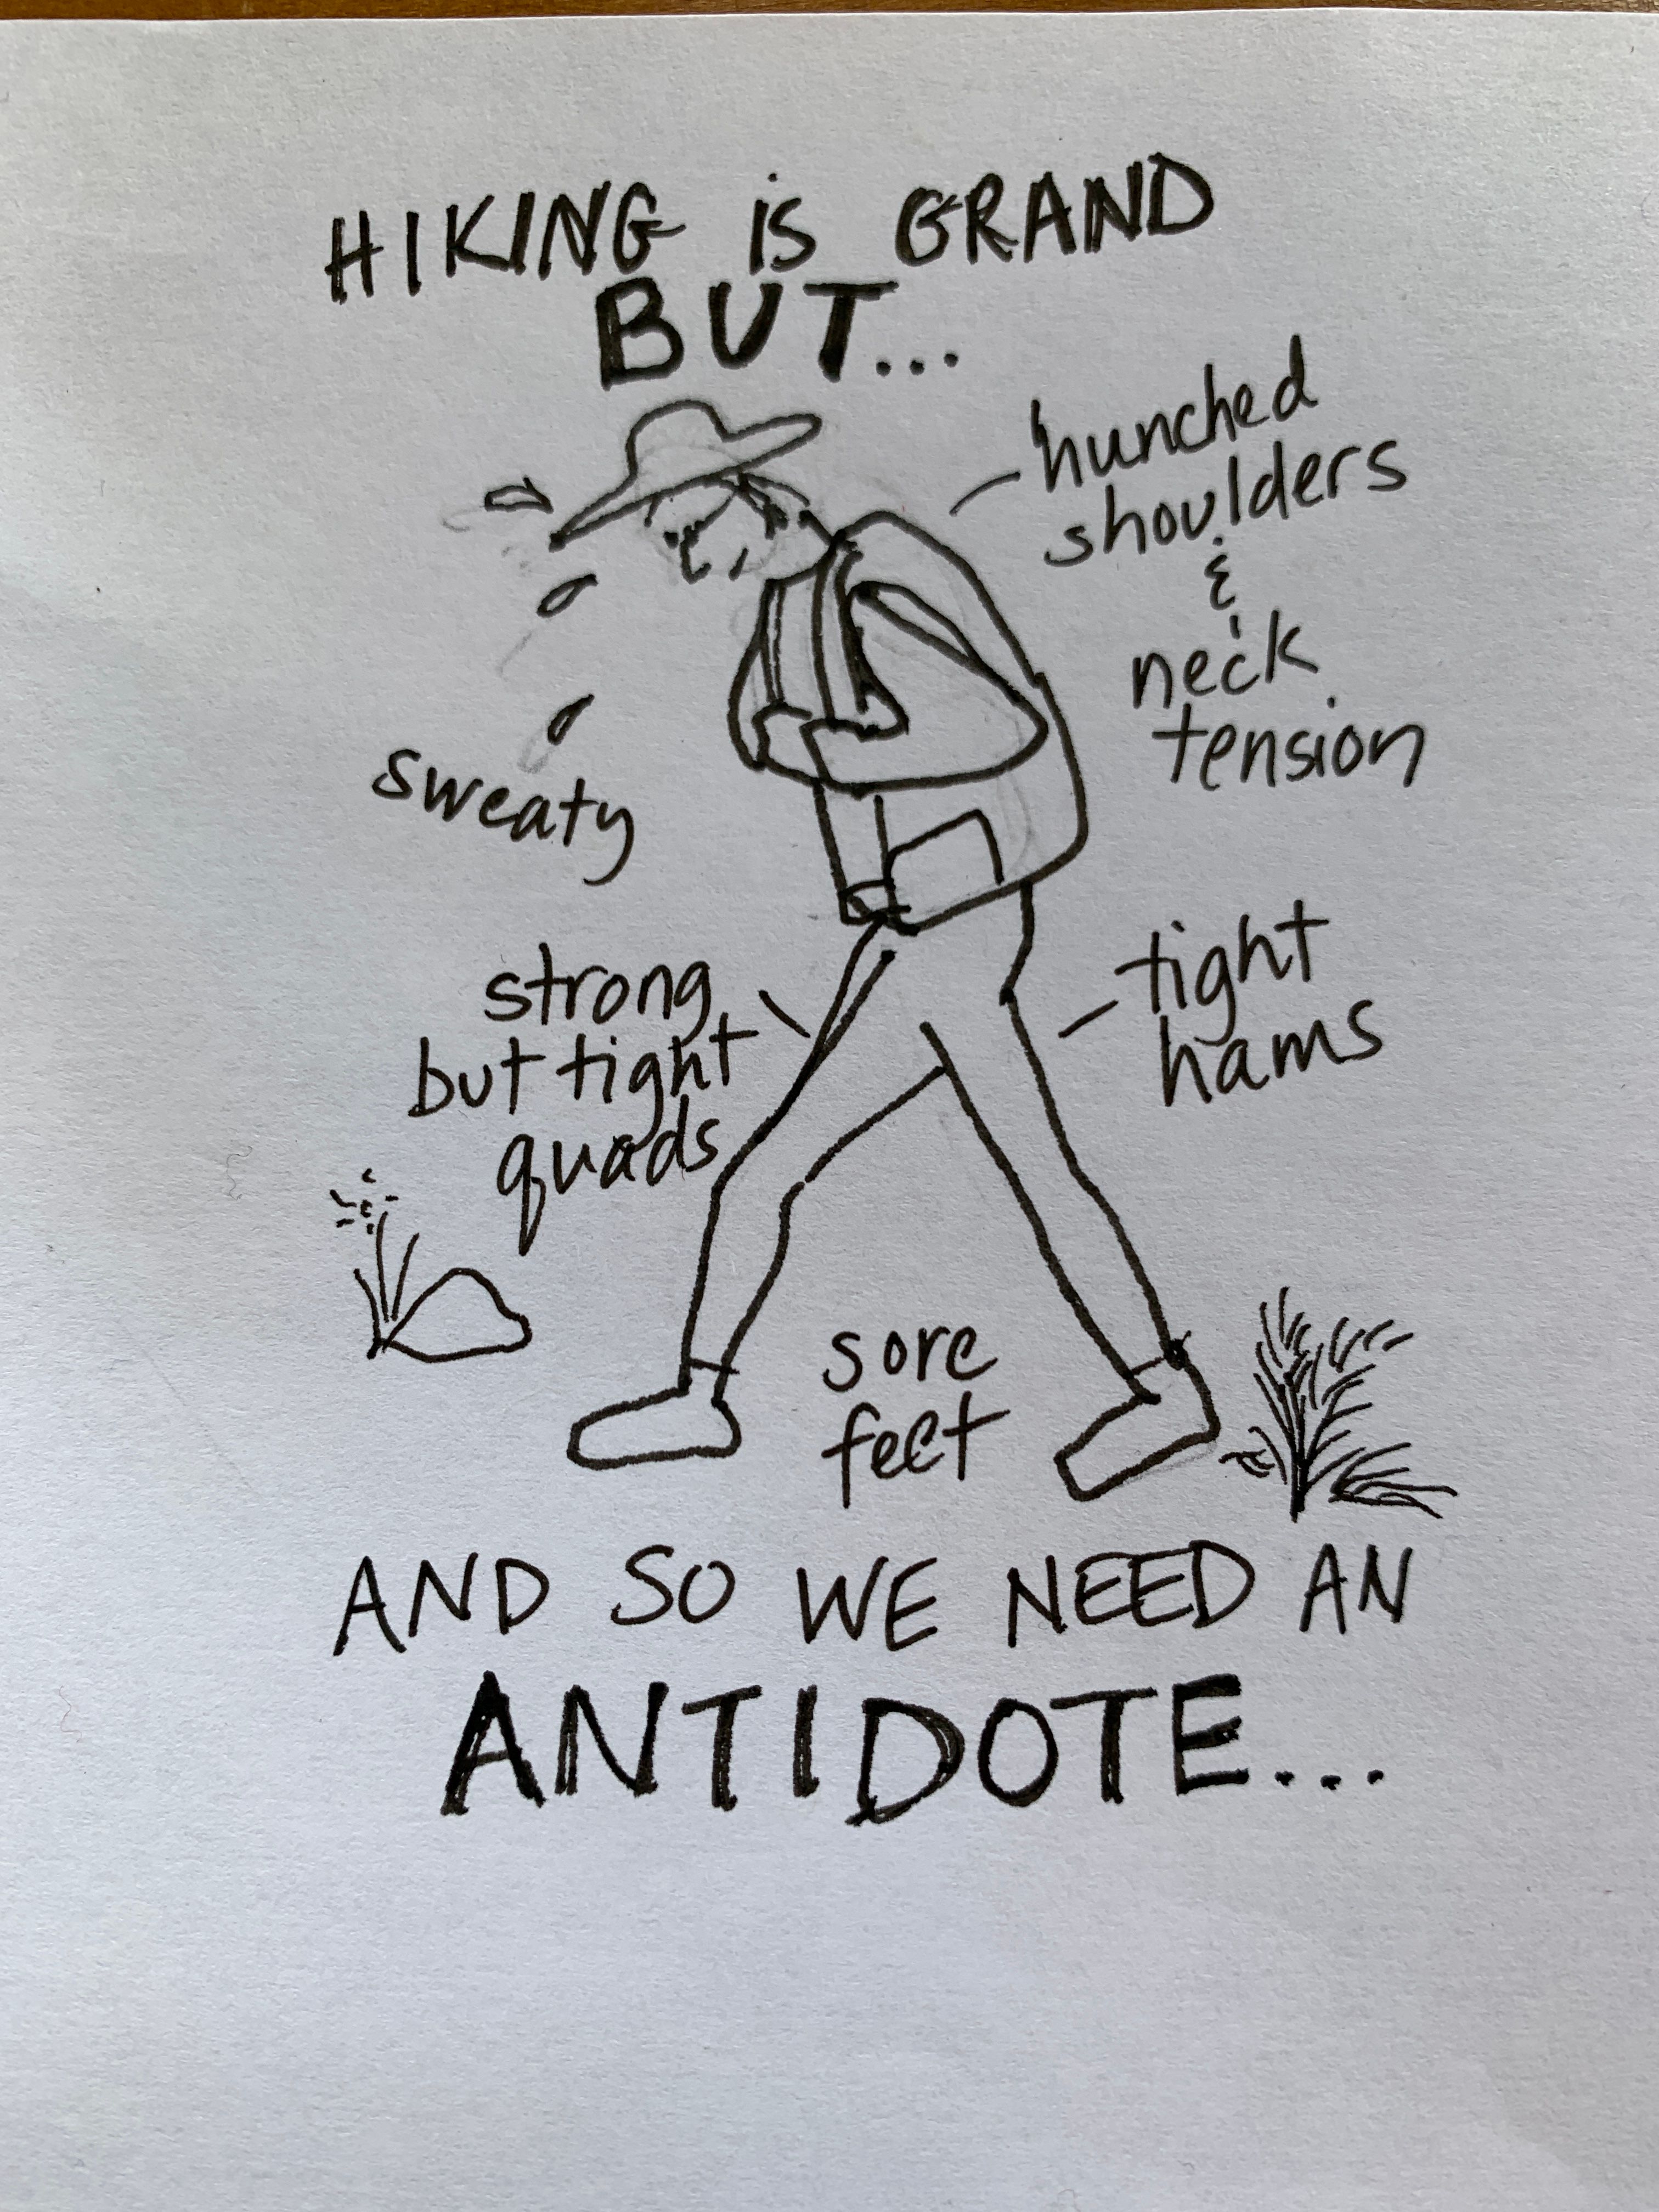 HIKING iS GRAND
BUT...
hunched
shoulders
&
neck
tension
sweaty
strong
but tight
quads
tight
hams
sore
feet
AND SO WE NEED AN
ANTIDOTE...